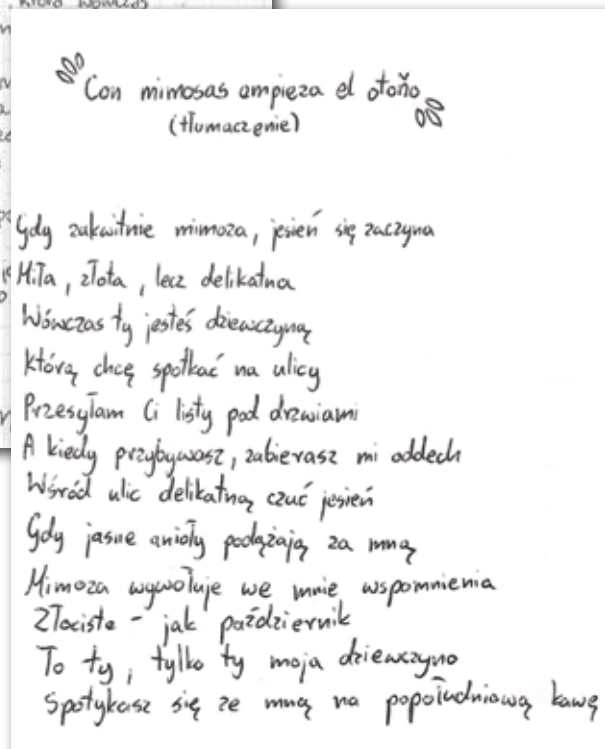 Con mimosas empieza el otoño
(tłumaczenie)
Gdy zakwitnie mimoza, jesień się zaczyna
Miła, złota, lecz delikatna
Wówczas ty jesteś dziewczyną
którą chcę spotkać na ulicy
Przesyłam Ci listy pod drzwiami
A kiedy przybywasz, zabierasz mi oddech
Wśród ulic delikatną czuć jesień
Gdy jasne anioły podążają za mną
Mimoza wywołuje we mnie wspomnienia
Złociste - jak październik
To ty, tylko ty moja dziewczyno
Spotykasz się ze mną na popołudniową kawę